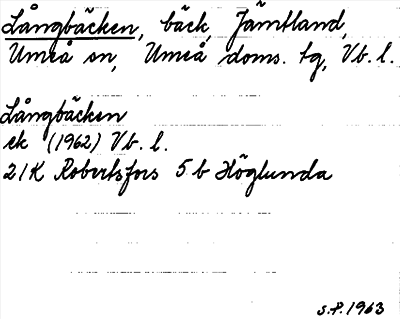 Långbäcken, bäck, Jämtland,
Umeå sn, Umeå doms. tg, Vb. l.
Långbäcken
ek (1962) Vb. l.
21K Robertsfors 5 b Höglunda
S.P. 1963